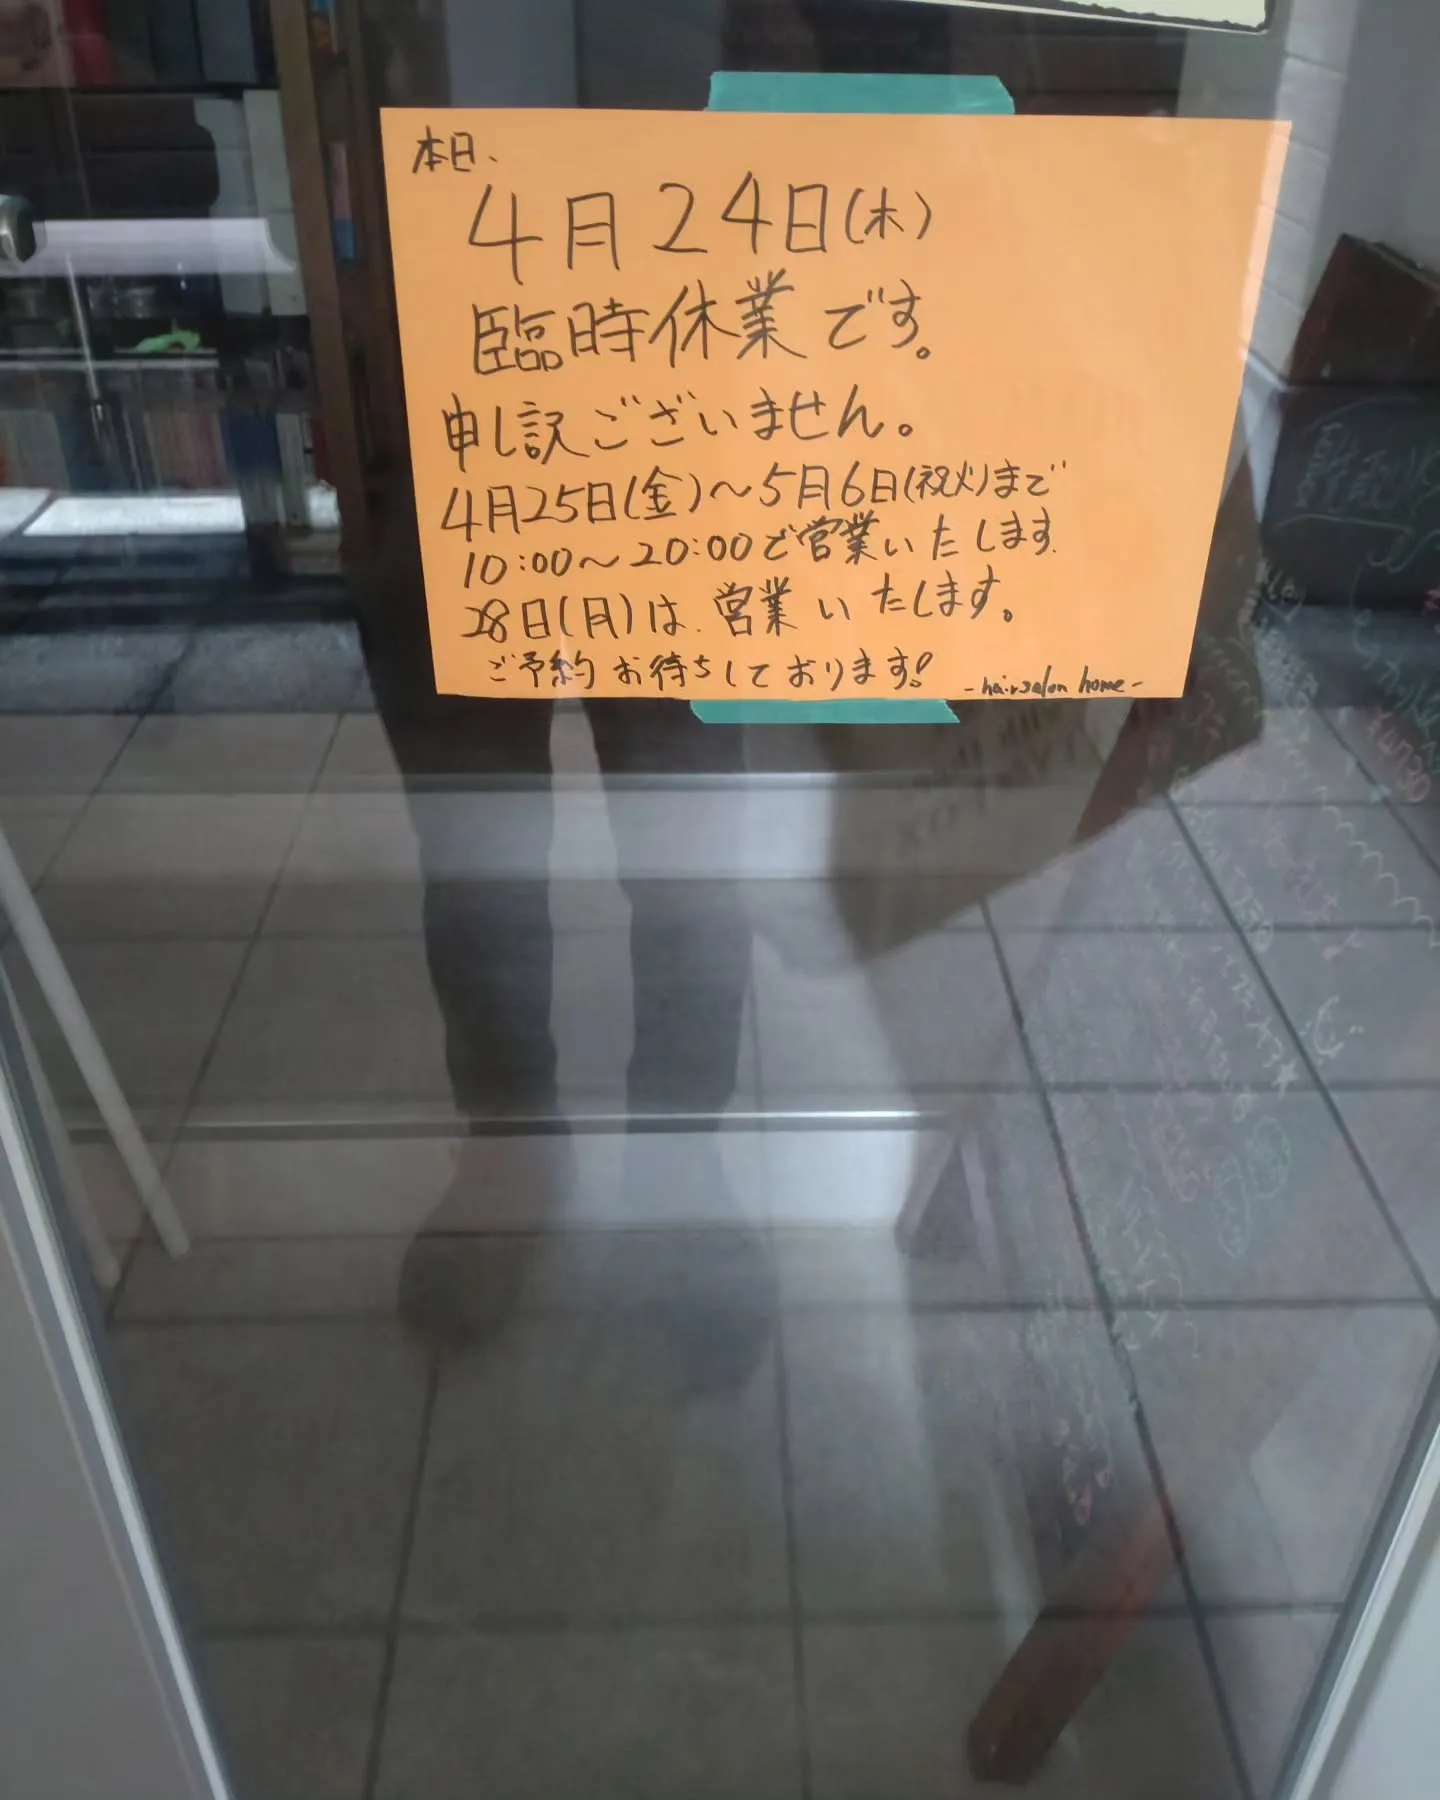 本日、
4月24日(木)
臨時休業です。
申し訳ございません。
4月25日(金)~5月6日(祝火)まで
10:00~20:00で営業いたします.
28日(月)は、営業いたします。
ご予約お待ちしております!
-hairsalon home-